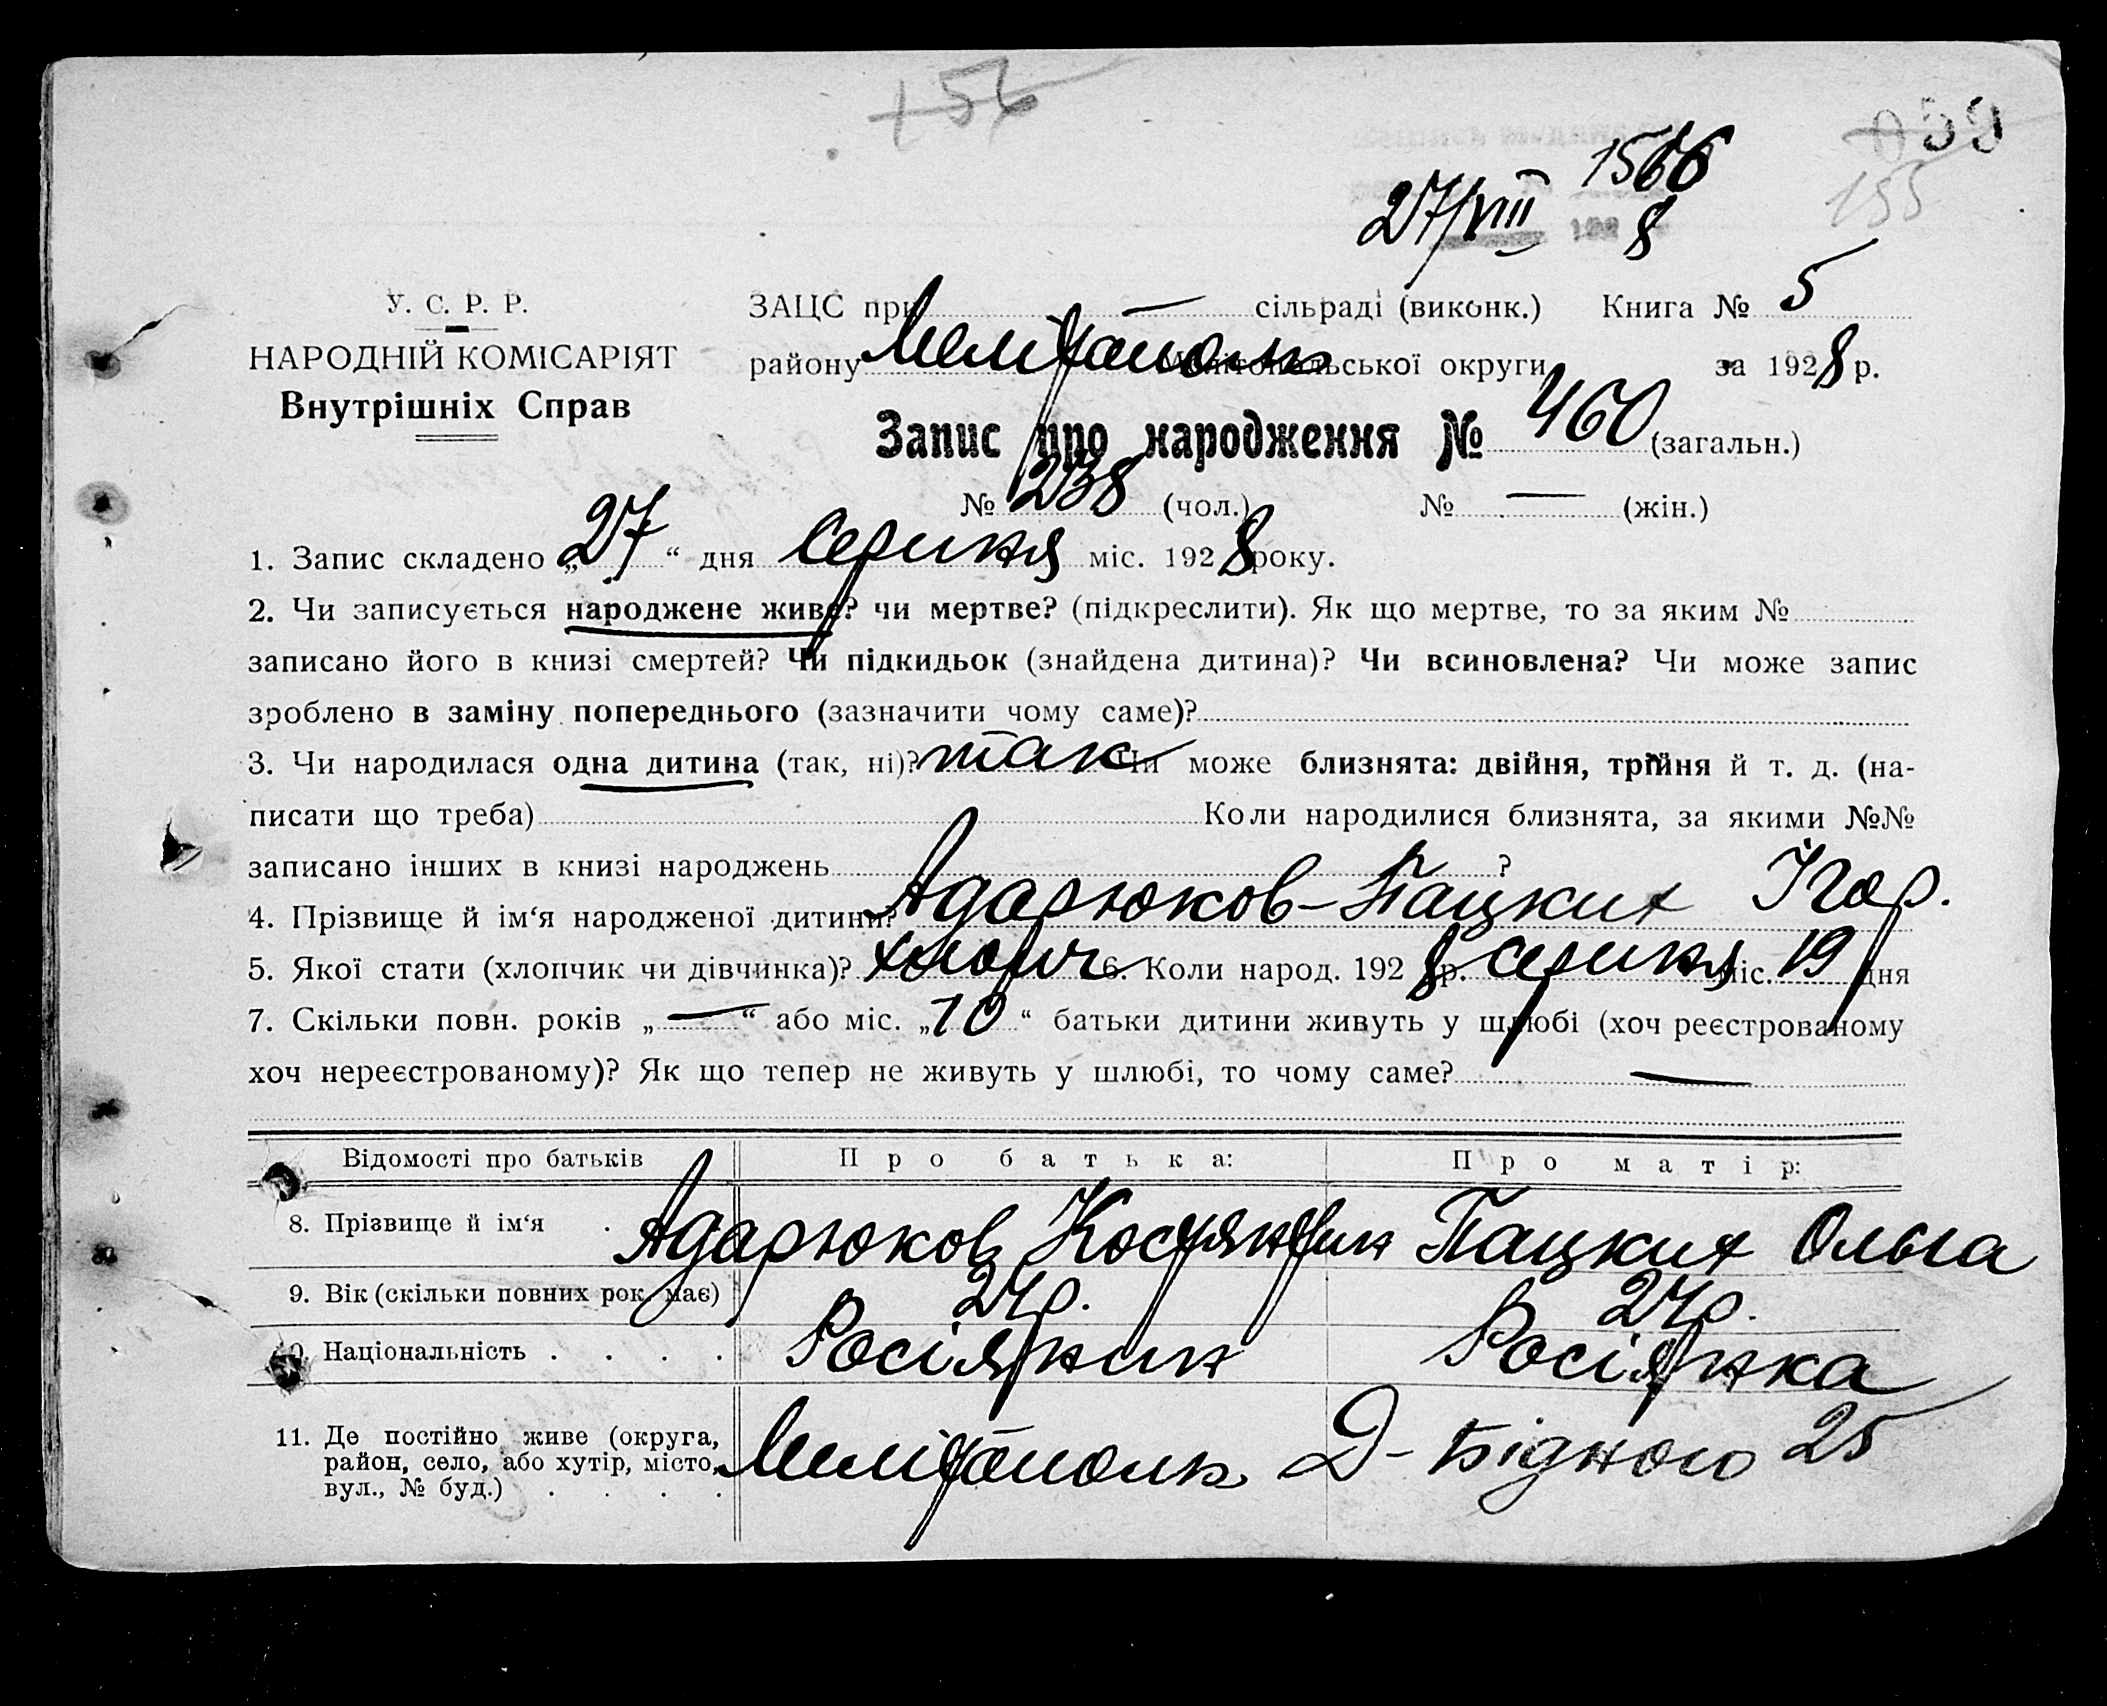 + 56
059
155
1566
27/VIII 192 8
У. С. Р. Р.
НАРОДНІЙ КОМІСАРІЯТ
Внутрішніх Справ
ЗАЦС при — сільраді (виконк.) Книга № 5
району Мелітополь Мелітопольської округи за 1928 р.
Запис про народження № 460 (загальн.)
№ 238 (чол.) № — (жін.)
1. Запис складено „27“ дня Серпня міс. 1928 року.
2. Чи записується народжене живе? чи мертве? (підкреслити). Як що мертве, то за яким №
записано його в книзі смертей? Чи підкидьок (знайдена дитина)? Чи всиновлена? Чи може запис
зроблено в заміну попереднього (зазначити чому саме)?
3. Чи народилася одна дитина (так, ні)? так Чи може близнята: двійня, трійня й т. д. (на-
писати що треба) Коли народилися близнята, за якими №№
записано інших в книзі народжень ?
4. Прізвище й ім‘я народженої дитини? Адарюков-Пацких Ігор.
5. Якої стати (хлопчик чи дівчинка)? хлопч 6. Коли народ. 1928 р. серпня міс. 19 дня
7. Скільки повн. років „—“ або міс. „10“ батьки дитини живуть у шлюбі (хоч реєстрованому
хоч нереєстрованому)? Як що тепер не живуть у шлюбі, то чому саме? —
Відомості про батьків Про батька: Про матір:
8. Прізвище й ім‘я . Адарюков Костянтин Пацких Ольга
9. Вік (скільки повних рок. має) 24р. 24р.
10. Національність . . . . Росіянин Росіянка
11. Де постійно живе (округа,
район, село, або хутір, місто,
вул., № буд.) . . . . Мелітополь Д-Бідного 25